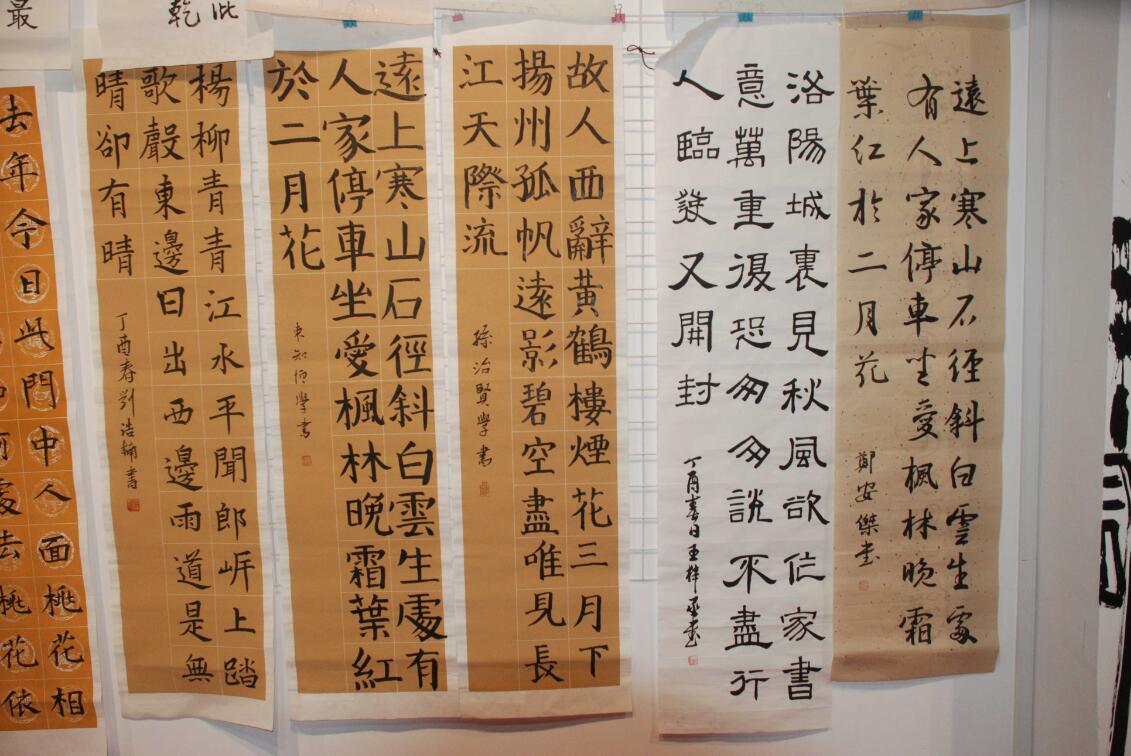 遠上寒山石徑斜白雲生處
有人家停車坐愛楓林晚霜
葉紅於二月花
鄭安傑書
洛陽城裏見秋風欲作家書
意萬重復恐匆匆說不盡行
人臨發又開封
丁酉春日王梓
故人西辭黃鶴樓煙花三月下
揚州孤帆遠影碧空盡唯見長
江天際流
孫治賢學書
遠上寒山石徑斜白雲生處有
人家停車坐愛楓林晚霜葉紅
於二月花
學書
楊柳青青江水平聞郎岸上踏
歌聲東邊日出西邊雨道是無
晴卻有晴
丁酉春劉浩楠書
此
乾
最
去年今日此門中人面桃花相
何處去桃花依